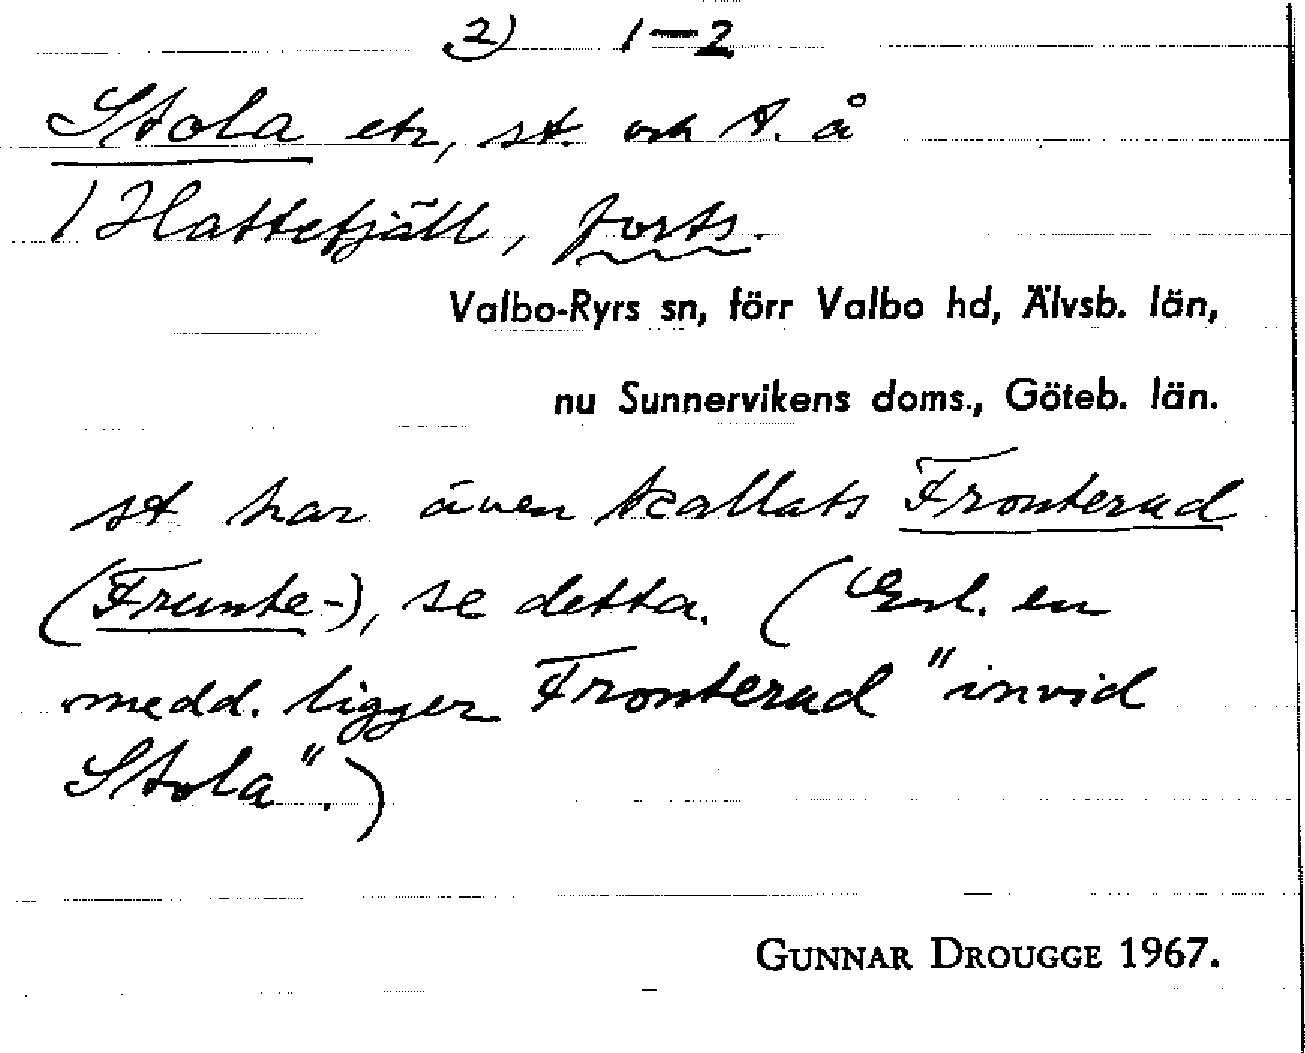 2) 1–2
Stola etc, st. och t. å
1 Hattefjäll, forts.
Valbo-Ryrs sn, förr Valbo hd, Älvsb. län,
nu Sunnervikens doms., Göteb. län.
st har även kallats Fronterud
(Frunte-), se detta. (Enl. en
medd. ligger Fronterud "invid
Stola".)
GUNNAR DROUGGE 1967.